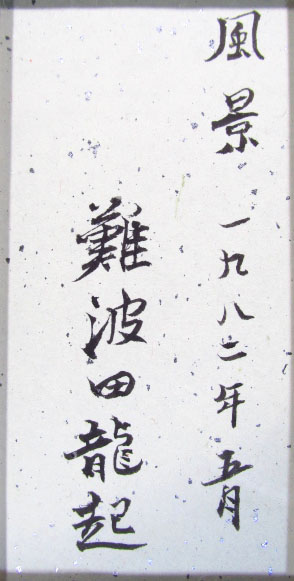 風景 一九八二年 五月
難波田龍起